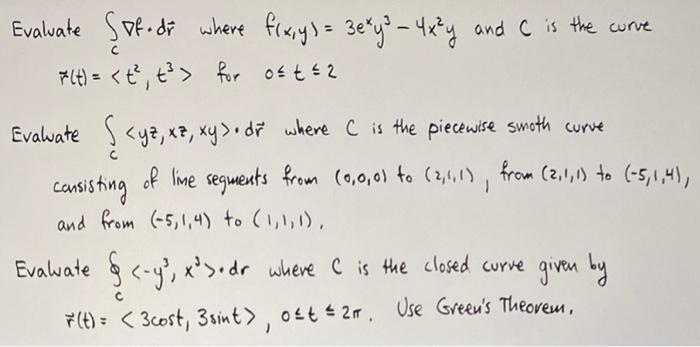 Evaluate ∫_C ∇f·dr⃗ where f(x,y) = 3eˣy³ – 4x²y and C is the curve
r⃗(t) = <t², t³> for 0 ≤ t ≤ 2
Evaluate ∫_C <yz, xz, xy>·dr⃗ where C is the piecewise smoth curve
consisting of line segments from (0,0,0) to (2,1,1), from (2,1,1) to (-5,1,4),
and from (-5,1,4) to (1,1,1).
Evaluate ∮_C <-y³, x³>·dr where C is the closed curve given by
r⃗(t) = <3cost, 3sint>, 0 ≤ t ≤ 2π. Use Green's Theorem.